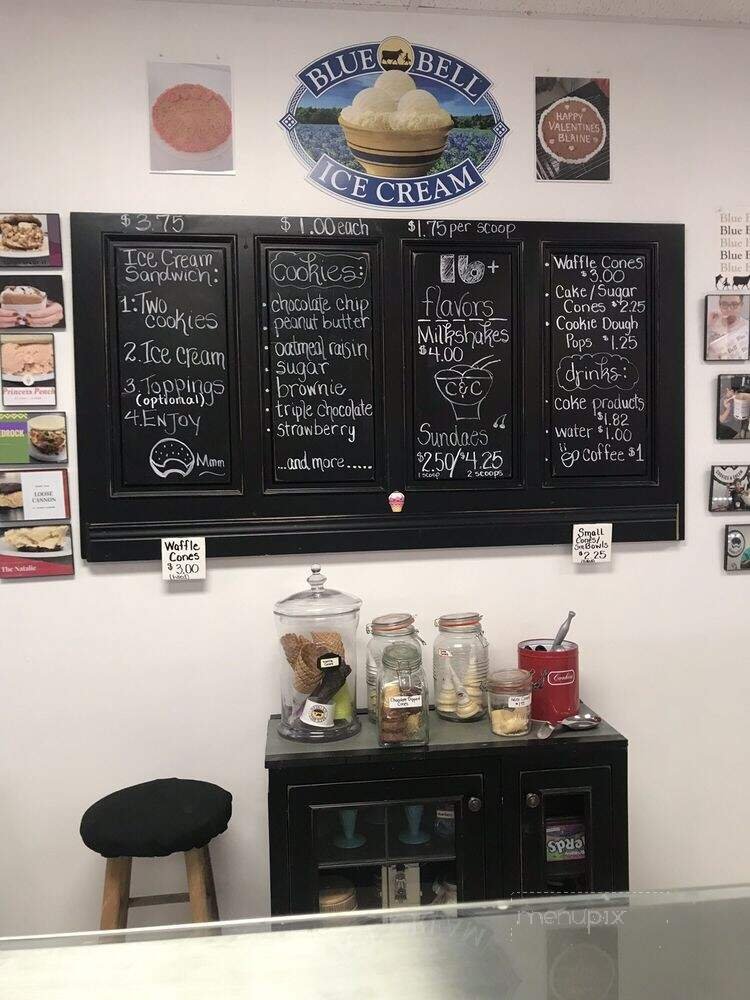 BLUE BELL
ICE CREAM
HAPPY
VALENTINE'S
BLAINE
$3.75
Ice Cream
Sandwich:
1: Two
cookies
2. Ice cream
3. Toppings
(optional)
4. Enjoy
Mmm
$1.00 each
Cookies:
chocolate chip
peanut butter
oatmeal raisin
sugar
brownie
triple chocolate
strawberry
...and more.....
$1.75 per scoop
16+
flavors
Milkshakes
$4.00
C&C
Sundaes
$2.50/$4.25
1 scoop 2 scoops
Waffle Cones
$3.00
Cake/Sugar
Cones $2.25
Cookie Dough
Pops $1.25
drinks:
coke products
$1.82
water $1.00
coffee $1
Blue
Blue B
Blue B
Blue B
Blue
Princess Peach
EDROCK
LOOSE
CANNON
The Natalie
Waffle
Cones
$3.00
Small
Cones/
$2.25
Chocolate Dipped
Cones
Cookies
Nerds
menupix